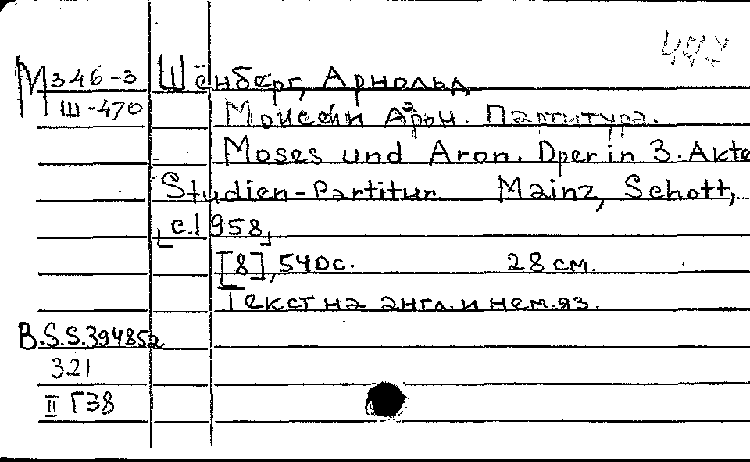 М 346-3 Шёнберг, Арнольд
Ш-470 Моисей и Арон. Партитура.
Moses und Aron. Oper in 3. Akte
Studien-Partitur Mainz, Schott,
[c.1958]
[8], 540с. 28 см.
Текст на англ. и нем. яз.
B.S.S.39485a
321
II Г38